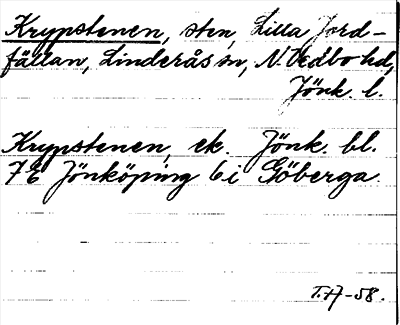 Krypstenen, sten, Lilla Jord-
fällan, Linderås sn, N. Vedbo hd,
Jönk. l.
Krypstenen, ek. Jönk. bl.
7E Jönköping 6i Göberga.
T. H-58.